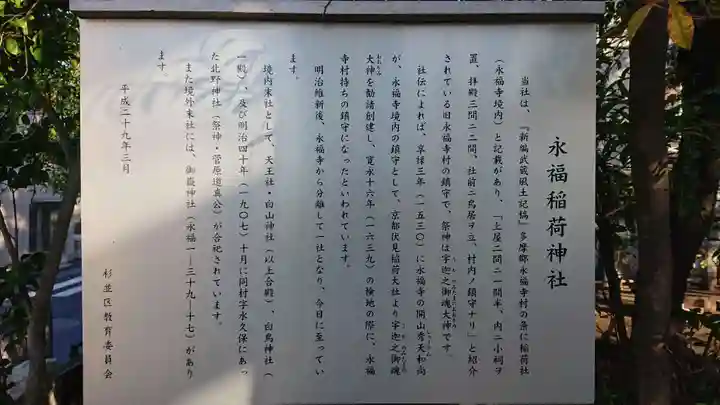 永福稲荷神社
当社は、『新編武蔵風土記稿』多摩郡永福寺村の条に稲荷社
(永福寺境内)と記載があり、「上屋二間ニ一間半、内ニ小祠ヲ
置、拝殿三間ニ二間、社前ニ鳥居ヲ立、村内ノ鎮守ナリ」と紹介
されている旧永福寺村の鎮守で、祭神は宇迦之御魂大神です。
社伝によれば、享禄三年(一五三〇)に永福寺の開山秀天和尚
が、永福寺境内の鎮守として、京都伏見稲荷大社より宇迦之御魂
大神を勧請創建し、寛永十六年(一六三九)の検地の際に、永福
寺村持ちの鎮守になったといわれています。
明治維新後、永福寺から分離して一社となり、今日に至ってい
ます。
境内末社として、天王社・白山神社(以上合殿)、白鳥神社(
一殿)、及び明治四十年(一九〇七)十月に同村字永久保にあっ
た北野神社(祭神・菅原道真公)が合祀されています。
また境外末社には、御嶽神社(永福一―三十九―十七)があり
ます
平成二十九年三月
杉並区教育委員会